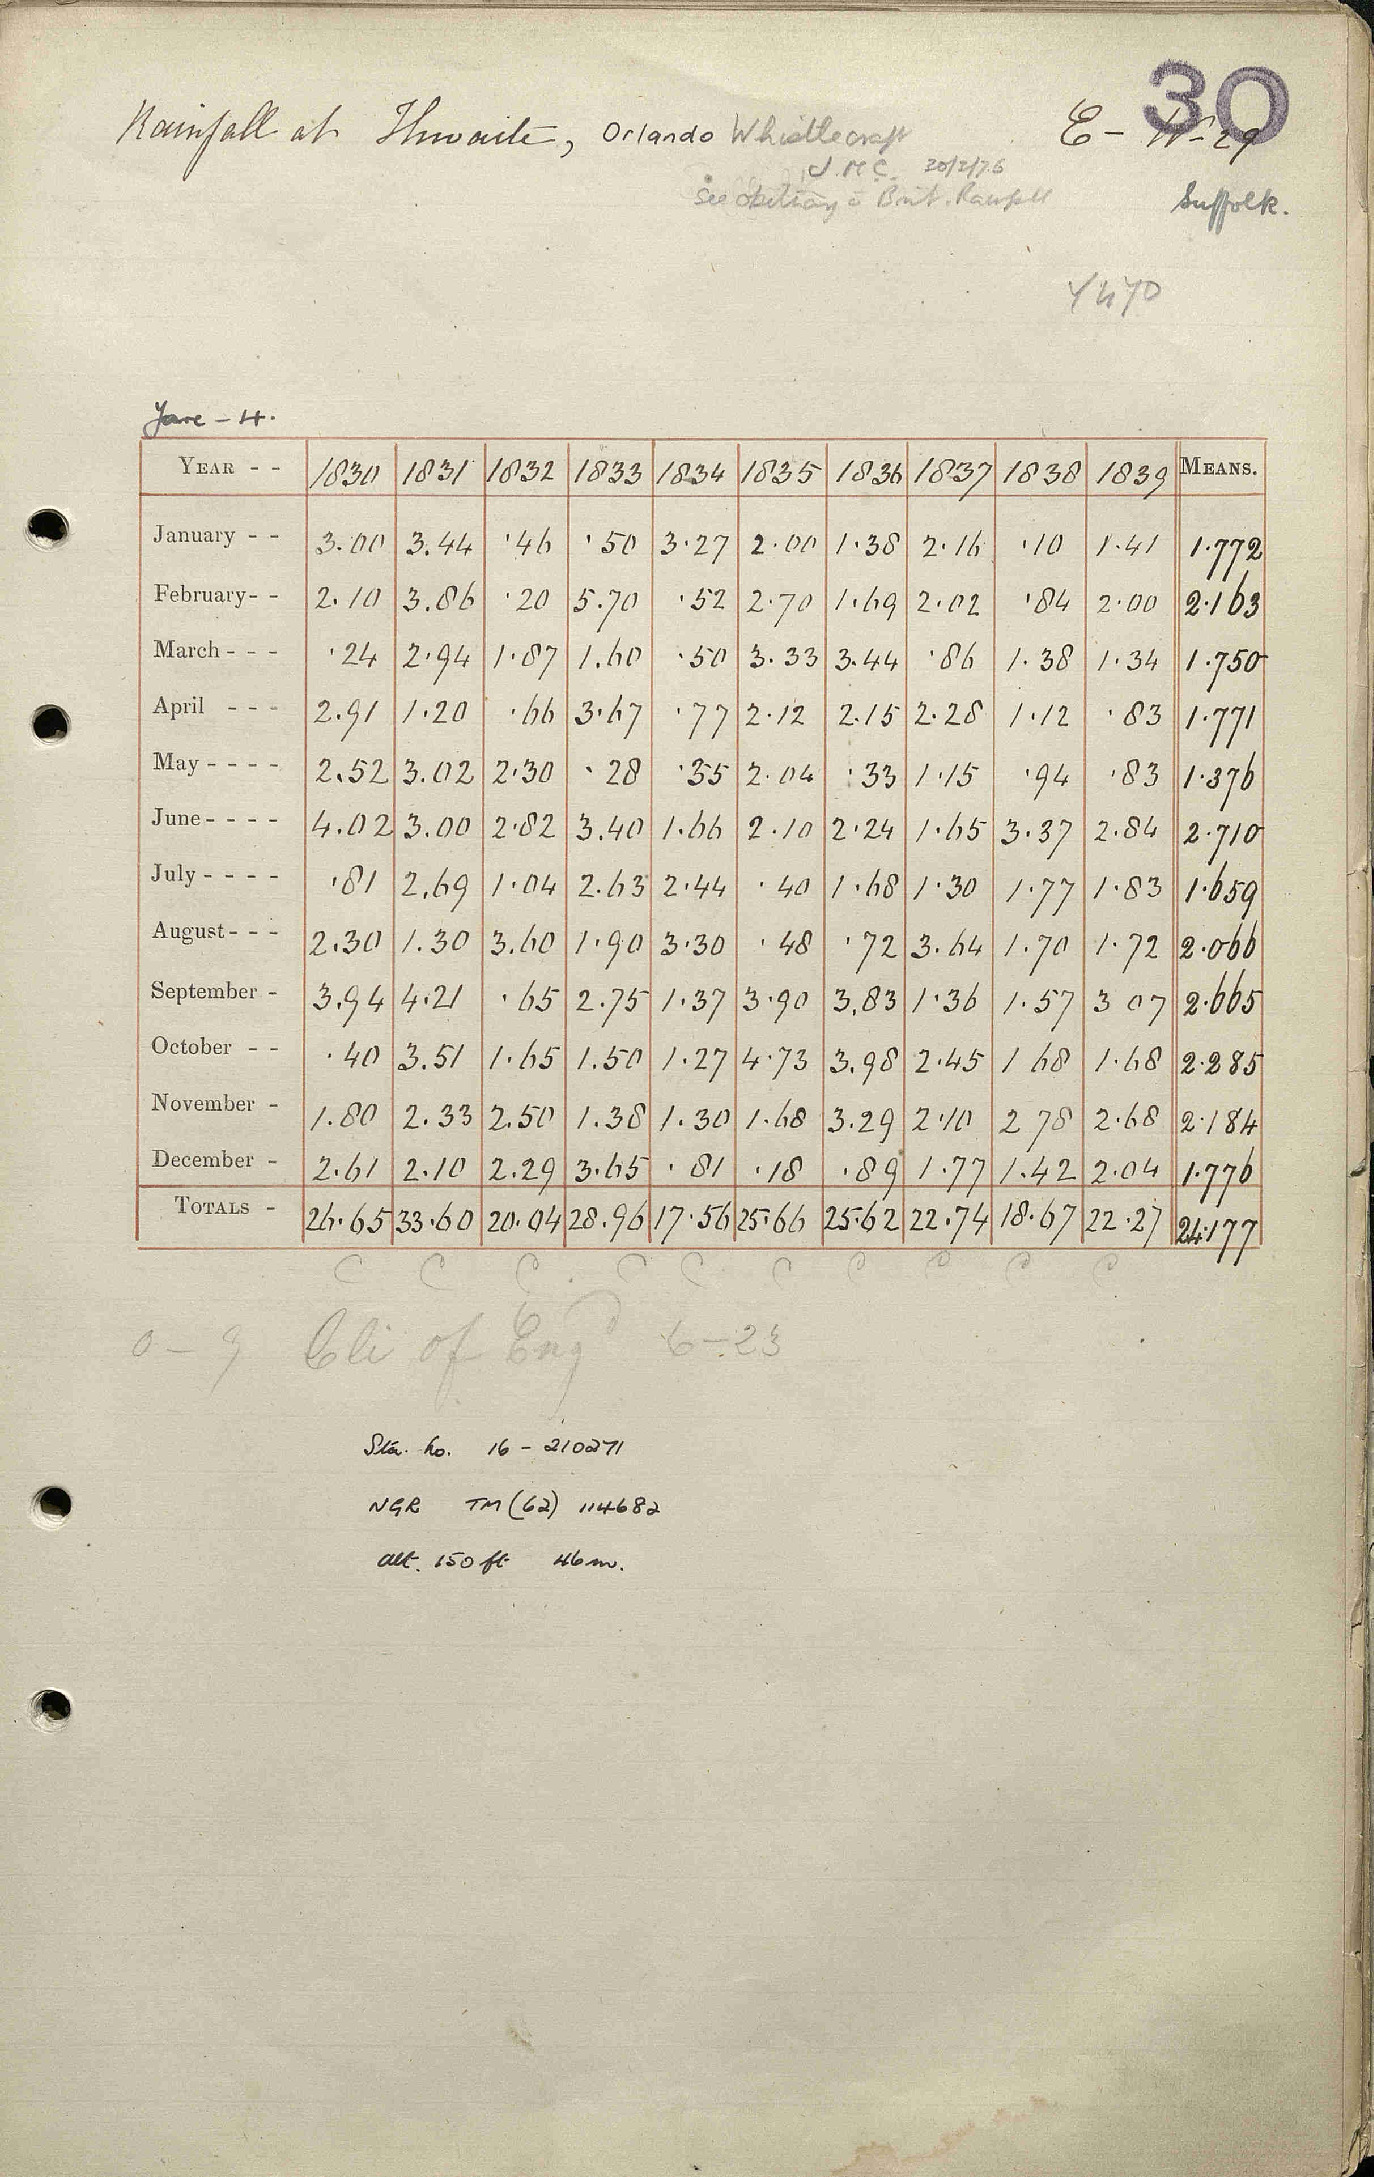 30
Rainfall at Thwaite, Orlando Whistlecraft E - W - 29
J.M.C. 30/3/76
See obituary in Brit. Rainfall Suffolk.
Yare - 4.
YEAR - - 1830 1831 1832 1833 1834 1835 1836 1837 1838 1839 MEANS.
January - - 3.00 3.44 .46 .50 3.27 2.00 1.38 2.16 .10 1.41 1.772
February - - 2.10 3.86 .20 5.70 .52 2.70 1.69 2.02 .84 2.00 2.163
March - - - .24 2.94 1.87 1.60 .50 3.33 3.44 .86 1.38 1.34 1.750
April - - - 2.91 1.20 .66 3.67 .77 2.12 2.15 2.28 1.12 .83 1.771
May - - - - 2.52 3.02 2.30 .28 .35 2.04 .33 1.15 .94 .83 1.376
June - - - - 4.02 3.00 2.82 3.40 1.66 2.10 2.24 1.65 3.37 2.84 2.710
July - - - - .81 2.69 1.04 2.63 2.44 .40 1.68 1.30 1.77 1.83 1.659
August - - - 2.30 1.30 3.60 1.90 3.30 .48 .72 3.64 1.70 1.72 2.066
September - 3.94 4.21 .65 2.75 1.37 3.90 3.83 1.36 1.57 3 07 2.665
October - - .40 3.51 1.65 1.50 1.27 4.73 3.98 2.45 1 68 1.68 2.285
November - 1.80 2.33 2.50 1.38 1.30 1.68 3.29 2.10 2 78 2.68 2.184
December - 2.61 2.10 2.29 3.65 .81 .18 .89 1.77 1.42 2.04 1.776
TOTALS - 26.65 33.60 20.04 28.96 17.56 25.66 25.62 22.74 18.67 22.27 24.177
C C C C C C C C C C
0 - 9 Cli of Engd 6-23
Sta. no. 16 - 210271
NGR TM (62) 114682
alt. 150 ft 46m.